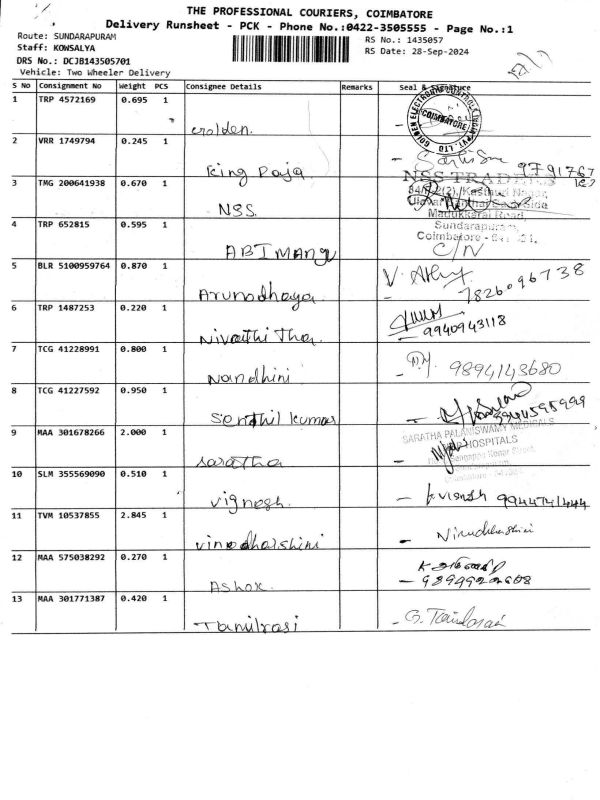 THE PROFESSIONAL COURIERS, COIMBATORE
Delivery Runsheet - PCK - Phone No.:0422-3505555 - Page No.:1
Route: SUNDARAPURAM
RS No.: 1435057
Staff: KOWSALYA
RS Date: 28-Sep-2024
DRS No.: DCJB143505701
Vehicle: Two Wheeler Delivery
S No Consignment No Weight PCS Consignee Details Remarks Seal & Signature
1 TRP 4572169 0.695 1 Golden.
GOLDEN ELECTRONIC CONTROLS INDIA PVT. LTD. COIMBATORE
2 VRR 1749794 0.245 1 King Raja
3 TMG 200641938 0.670 1 NSS.
NSS TRADERS
Madukkarai Road,
Sundarapuram,
Coimbatore
4 TRP 652815 0.595 1 ABIMANYU C/N
5 BLR 5100959764 0.870 1 Arunodhaya 7826096738
6 TRP 1487253 0.220 1 Nivathitha. 9940943118
7 TCG 41228991 0.800 1 Nandhini 9894143680
8 TCG 41227592 0.950 1 Senthil kumar 9944595999
9 MAA 301678266 2.000 1 saratha
SARATHA PALANISWAMY MEDICALS
HOSPITALS
10 SLM 355569090 0.510 1 vignesh.
11 TVM 10537855 2.845 1 vinodharshini
12 MAA 575038292 0.270 1 Ashok.
13 MAA 301771387 0.420 1 Tamilrasi